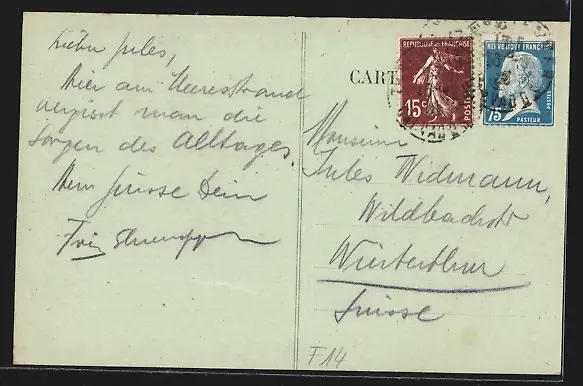 Lieber Jules,
Hier am Meeresstrand
vergisst man die
Sorgen des Alltages.
Dein
Fritz
CART
REPUBLIQUE FRANÇAISE
15c
POSTES
REPUBLIQUE FRANÇAISE
POSTES
75c
PASTEUR
Monsieur
Jules Widmann,
Wildbachstr
Winterthur
Suisse
F14